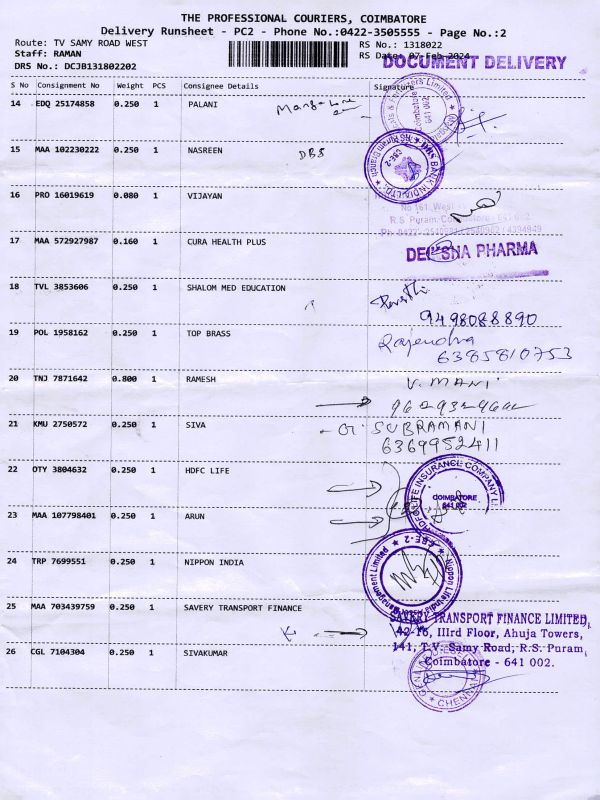 THE PROFESSIONAL COURIERS, COIMBATORE
Delivery Runsheet - PC2 - Phone No.:0422-3505555 - Page No.:2
Route: TV SAMY ROAD WEST RS No.: 1318022
Staff: RAMAN RS Date: 07-Feb-2024
DOCUMENT DELIVERY
DRS No.: DCJB131802202
S No Consignment No Weight PCS Consignee Details Signature
14 EDQ 25174858 0.250 1 PALANI
15 MAA 102230222 0.250 1 NASREEN DBS
DBS BANK INDIA LTD. CBE-2
16 PRO 16019619 0.080 1 VIJAYAN
R.S. Puram, Coimbatore - 641 002
17 MAA 572927987 0.160 1 CURA HEALTH PLUS
PHARMA
18 TVL 3853606 0.250 1 SHALOM MED EDUCATION
9498088890
19 POL 1958162 0.250 1 TOP BRASS Rajendra
6385810753
20 TNJ 7871642 0.800 1 RAMESH V. MANI
21 KMU 2750572 0.250 1 SIVA SUBRAMANI
6369952411
22 OTY 3804632 0.250 1 HDFC LIFE
HDFC LIFE INSURANCE COMPANY
COIMBATORE
641 002
23 MAA 107798401 0.250 1 ARUN
CBE-2
24 TRP 7699551 0.250 1 NIPPON INDIA
Nippon Life India
25 MAA 703439759 0.250 1 SAVERY TRANSPORT FINANCE
SAVERY TRANSPORT FINANCE LIMITED,
42-16, IIIrd Floor, Ahuja Towers,
141, T.V. Samy Road, R.S. Puram,
Coimbatore - 641 002.
26 CGL 7104304 0.250 1 SIVAKUMAR
CHENNAI